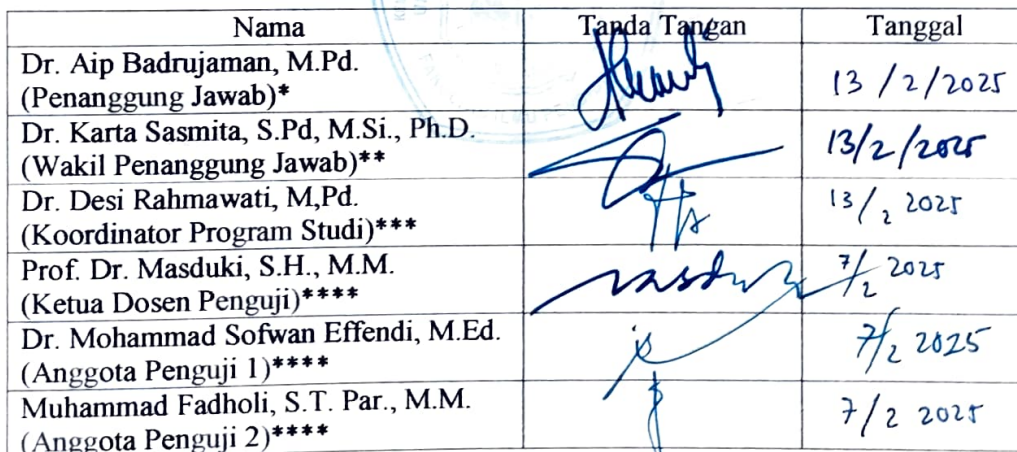 Nama Tanda Tangan Tanggal
Dr. Aip Badrujaman, M.Pd.
(Penanggung Jawab)* 13 / 2 / 2025
Dr. Karta Sasmita, S.Pd, M.Si., Ph.D.
(Wakil Penanggung Jawab)** 13/2/2025
Dr. Desi Rahmawati, M,Pd.
(Koordinator Program Studi)*** 13/2 2025
Prof. Dr. Masduki, S.H., M.M.
(Ketua Dosen Penguji)**** 7/2 2025
Dr. Mohammad Sofwan Effendi, M.Ed.
(Anggota Penguji 1)**** 7/2 2025
Muhammad Fadholi, S.T. Par., M.M.
(Anggota Penguji 2)**** 7/2 2025